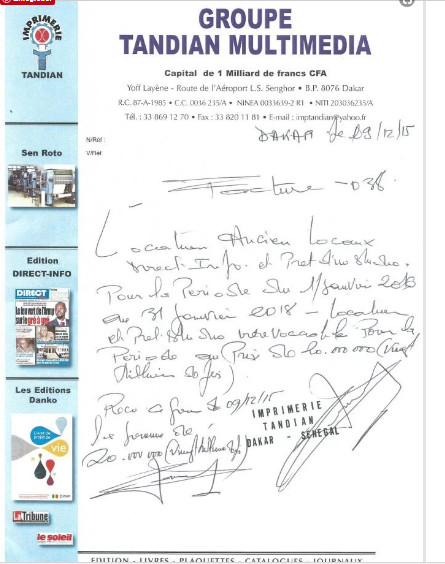 IMPRIMERIE
TANDIAN
GROUPE
TANDIAN MULTIMEDIA
Capital de 1 Milliard de francs CFA
Yoff Layène - Route de l'Aéroport L.S. Senghor • B.P. 8076 Dakar
R.C. 87-A-1985 • C.C. 0036 235/A • NINEA 0033639-2 R1 • NITI 203036235/A
Tél. : 33 869 12 70 • Fax : 33 820 11 81 • E-mail : imptandian@yahoo.fr
DAKAR le 09/12/15
N/Réf :
V/Réf
Sen Roto
Facture - 038
Location Ancien Locaux
Direct Info. et Pret du Studio.
Pour la Periode du 1/Janvier 2013
au 31 Janvier 2018 - Location
et Pret Studio Pour la
Periode au Prix de 20.000 000 (Vingt
Millions de frs)
Reçu ce jour le 09/12/15
la somme de
20.000 000 (Vingt Millions frs)
IMPRIMERIE
TANDIAN
DAKAR - SENEGAL
Edition
DIRECT-INFO
DIRECT
Les Editions
Danko
vie
La Tribune
le soleil
EDITION - LIVRES - PLAQUETTES - CATALOGUES - JOURNAUX